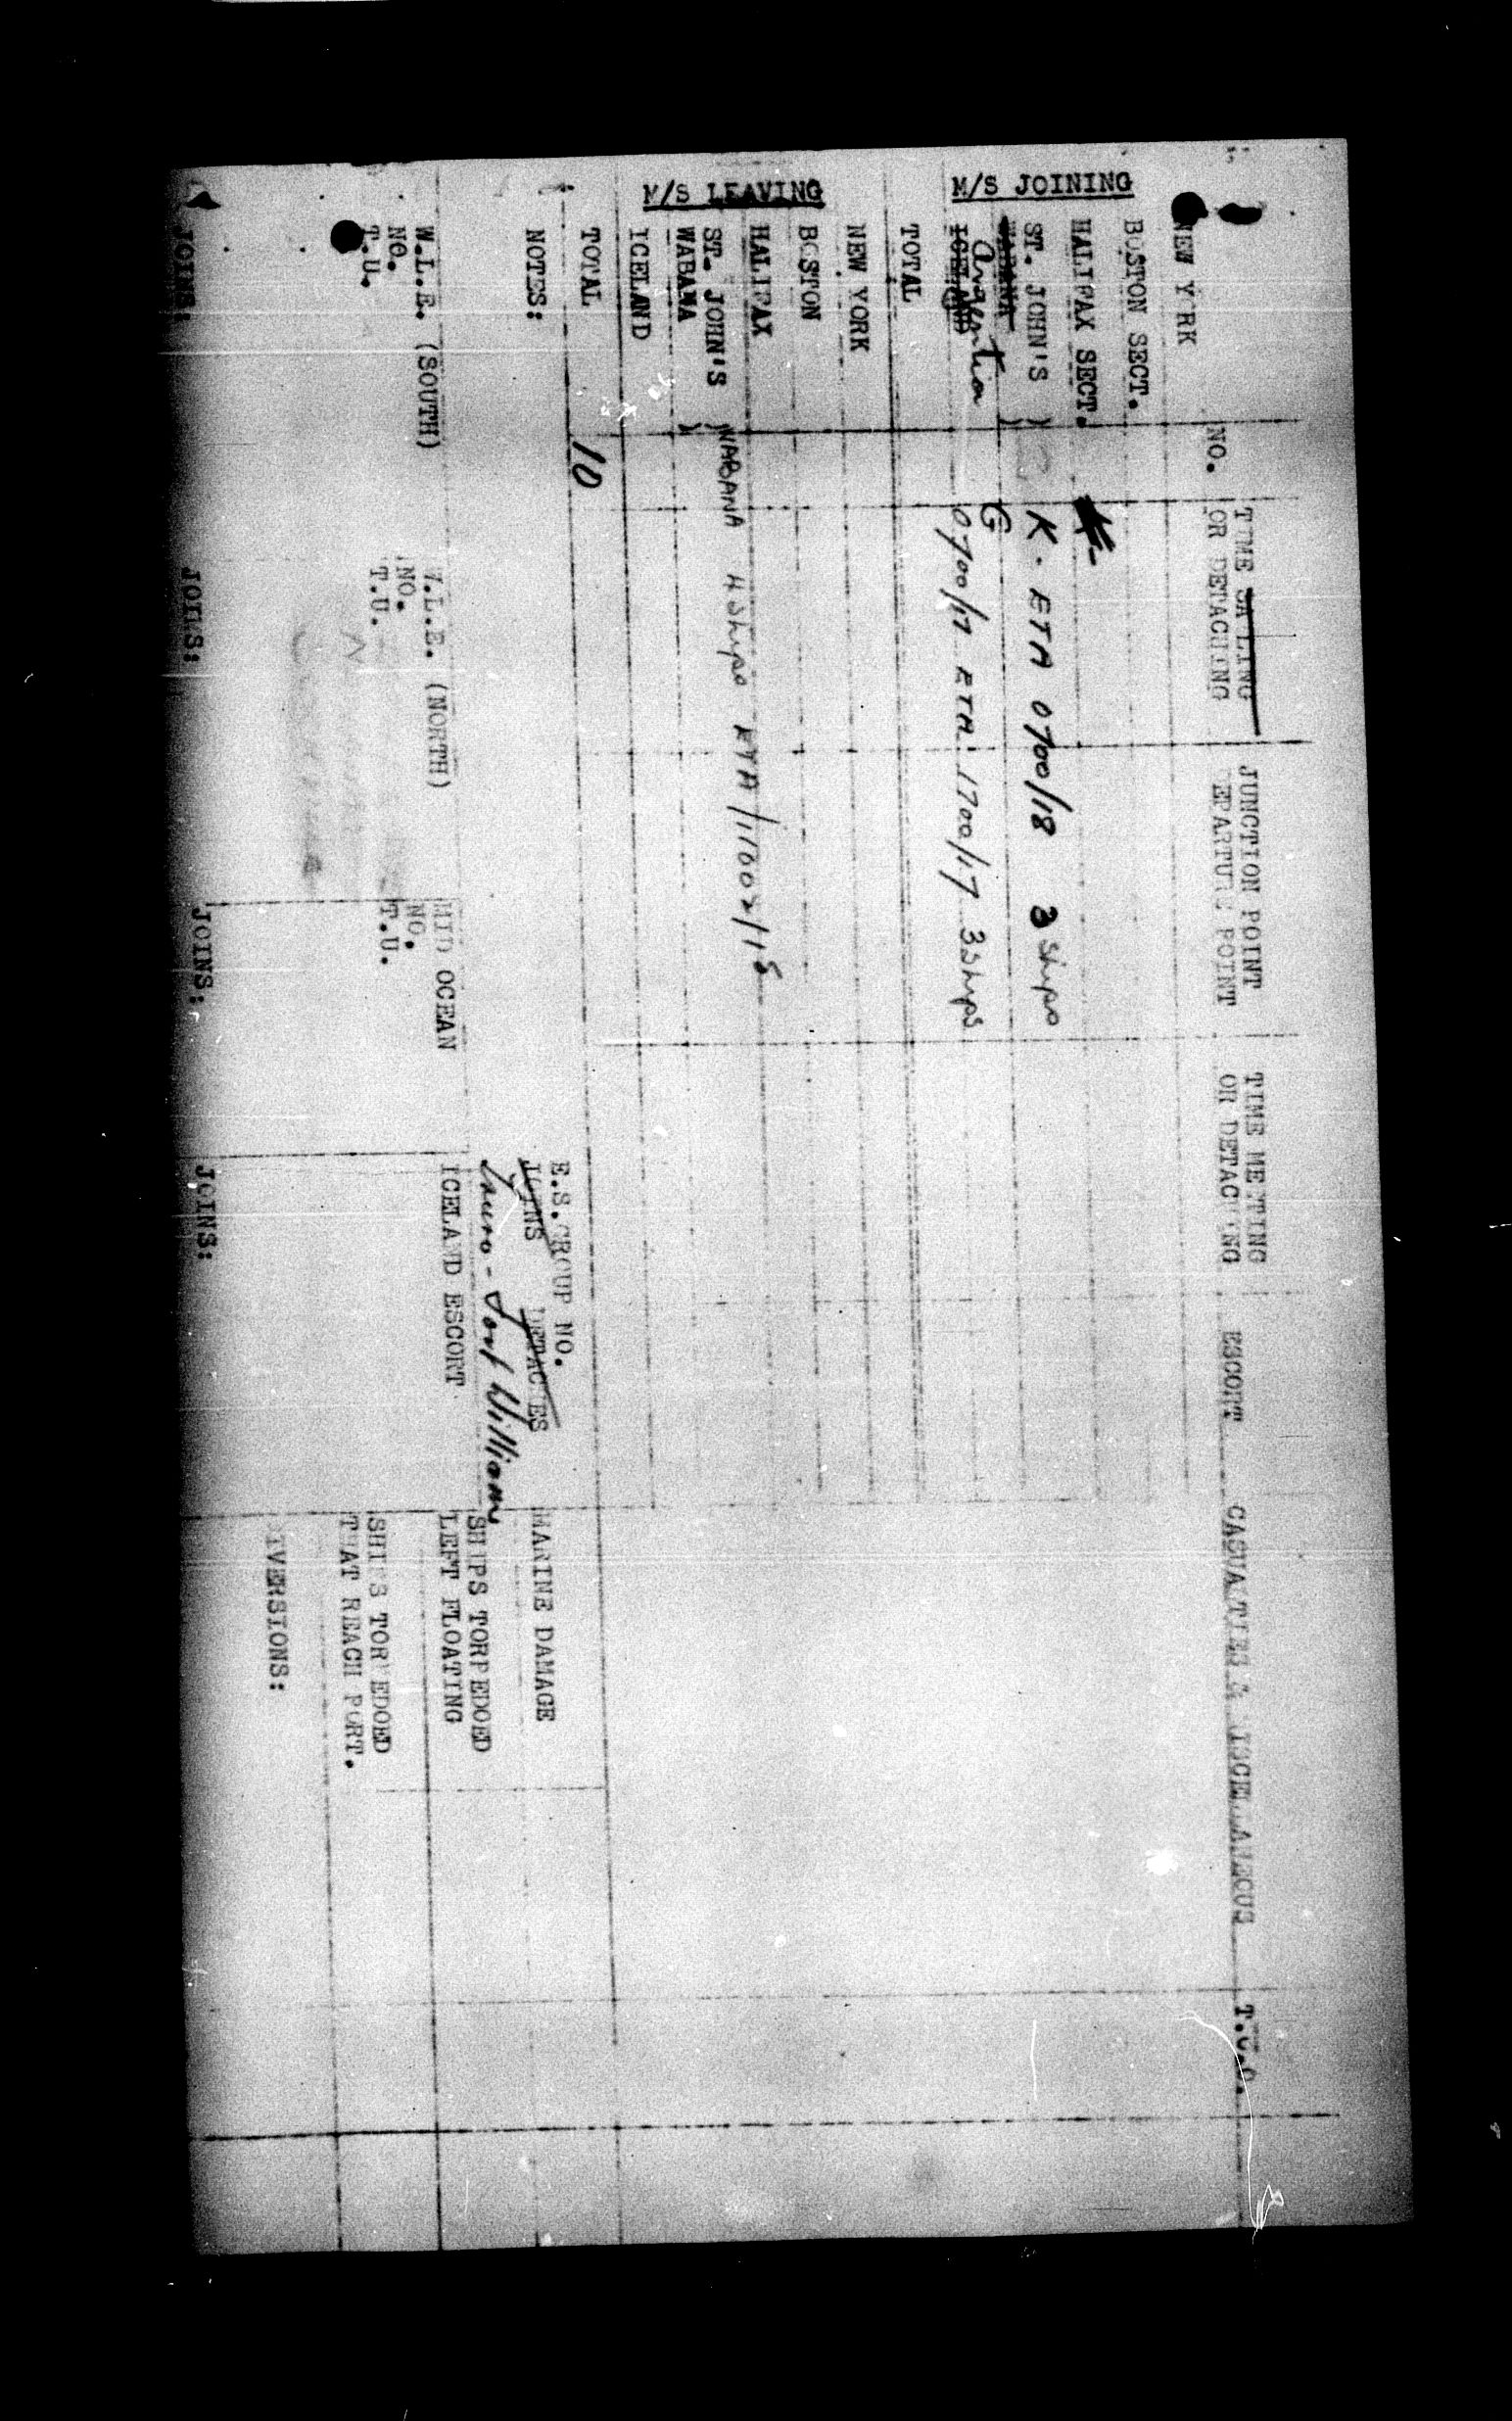 NO. TIME SAILING OR DETACHING JUNCTION POINT DEPARTURE POINT TIME MEETING OR DETACHING ESCORT CASUALTIES & MISCELLANEOUS T.O.O.
NEW YORK
BOSTON SECT.
HALIFAX SECT.
M/S JOINING
ST. JOHN'S ) K. ETA 0700/18 3 Ships
WABANA ) G
Argentia 0700/17 ETA 1700/17 3 Ships
ICELAND
TOTAL
NEW YORK
BOSTON
HALIFAX
M/S LEAVING
ST. JOHN'S ) WABANA 4 Ships ETA 1100z/18
WABANA )
ICELAND
TOTAL 10
NOTES:
E.S. GROUP NO.
JOINS DETACHES
Truro - Fort William
MARINE DAMAGE
SHIPS TORPEDOED
LEFT FLOATING
SHIPS TORPEDOED
THAT REACH PORT.
DIVERSIONS:
W.L.E. (SOUTH)
NO.
T.U.
JOINS:
W.L.E. (NORTH)
NO.
T.U.
JOINS:
MID OCEAN
NO.
T.U.
JOINS:
ICELAND ESCORT
JOINS: